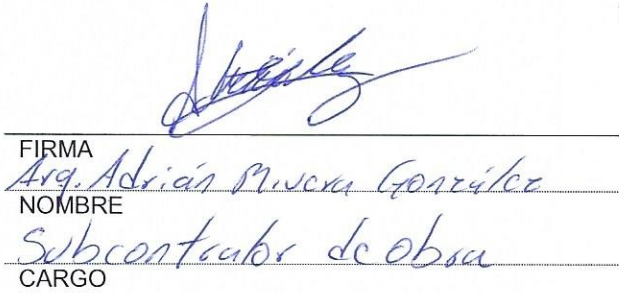 FIRMA
Arq. Adrián Rivera González
NOMBRE
Subcontrator de obra
CARGO